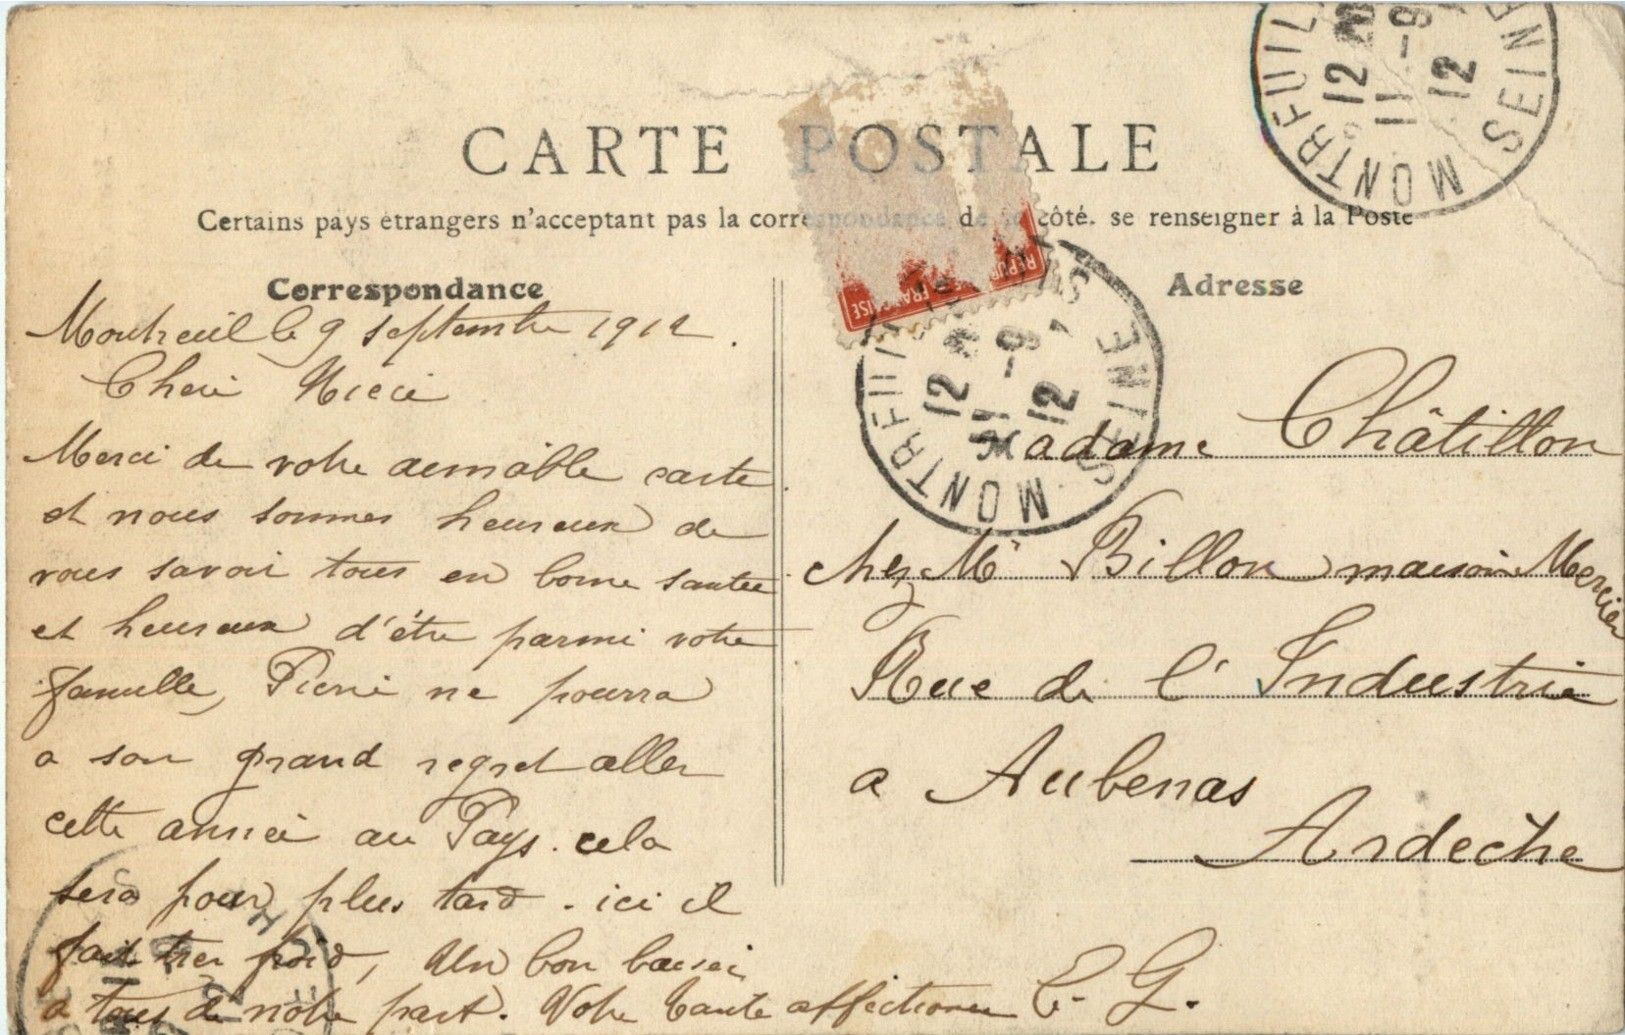 CARTE POSTALE
Certains pays étrangers n'acceptant pas la correspondance de ce côté. se renseigner à la Poste
Correspondance
Montreuil le 9 septembre 1912.
Cheri Niece
Merci de votre aemable carte
et nous sommes heureux de
vous savoir tous en bonne santee
et heureux d'être parmi votre
famille, Pierre ne pourra
a son grand regret aller
cette année au Pays. cela
sera pour plus tard. ici il
fait tres froid, Un bon baiser
a tous de notre part. Votre tante affectionnee E. G.
Adresse
Madame Châtillon
chez Mr Billon maison Mercier
Rue de l'Industrie
a Aubenas
Ardèche
REPUBLIQUE FRANÇAISE
MONTREUIL
SEINE
12
11 -9
12
MONTREUIL
SEINE
12
11 -9
12